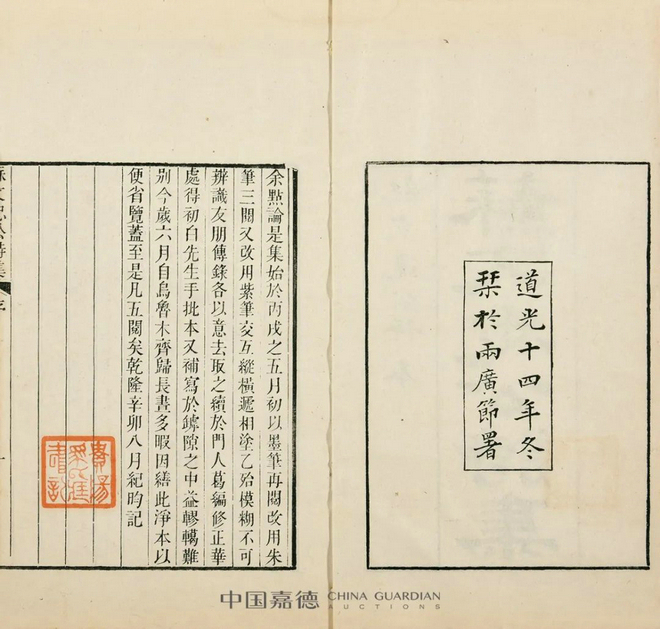 道光十四年冬
栞於兩廣節署
余點論是集始於丙戌之五月初以墨筆再閱改用朱
筆三閱又改用紫筆交互縱橫遞相塗乙殆模糊不可
辨識友朋傳錄各以意去取之續於門人葛編修正華
處得初白先生手批本又補寫於罅隙之中益轇轕難
別今歲六月自烏魯木齊歸長晝多暇因繕此淨本以
便省覽蓋至是凡五閱矣乾隆辛卯八月紀昀記
蘇文忠公詩集
中国嘉德 CHINA GUARDIAN
AUCTIONS